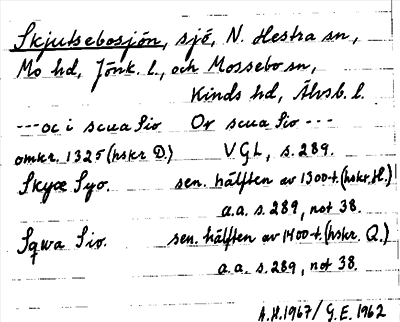 Skjutsebosjön, sjö, N. Hestra sn,
Mo hd, Jönk. l., och Mossebo sn,
Kinds hd, Älvsb. l.
---oc i scua Sio Or scua Sio ---
omkr. 1325 (hskr D.) VGL, s. 289.
Skyæ Syo. sen. hälften av 1300-t. (hskr. H.)
a.a. s. 289, not 38.
Sqwa Sio. sen. hälften av 1400-t. (hskr. Q.)
a.a. s. 289, not 38.
A.H. 1967 / G.E. 1962